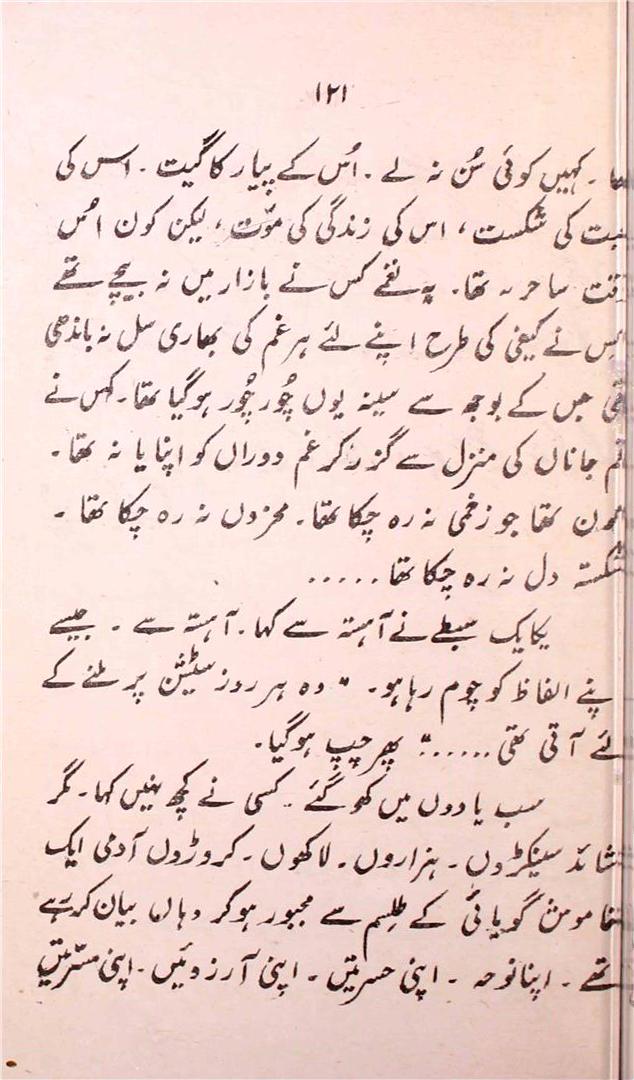 ۱۲۱
تھا۔ کہیں کوئی سُن نہ لے۔ اُس کے پیار کا گیت۔ اس کی
محبت کی شکست، اس کی زندگی کی موت، لیکن کون اس
وقت ساحر نہ تھا۔ یہ نغمے کس نے بازار میں نہ بیچے تھے
کس نے کیفی کی طرح اپنے لئے ہر غم کی بھاری سل نہ باندھی
تھی جس کے بوجھ سے سینہ یوں چُور چُور ہوگیا تھا۔ کس نے
غم جاناں کی منزل سے گزر کر غم دوراں کو اپنایا نہ تھا۔
کون تھا جو زخمی نہ رہ چکا تھا۔ محزوں نہ رہ چکا تھا۔
شکستہ دل نہ رہ چکا تھا.....
یکایک سبطے نے آہستہ سے کہا۔ آہستہ سے۔ جیسے
اپنے الفاظ کو چوم رہا ہو۔ "وہ ہر روز سٹیشن پر ملنے کے
لئے آتی تھی......" پھر چپ ہوگیا۔
سب یادوں میں کھو گئے۔ کسی نے کچھ نہیں کہا۔ مگر
شائد سینکڑوں۔ ہزاروں۔ لاکھوں۔ کروڑوں آدمی ایک
خاموش گویائی کے طلسم سے مجبور ہوکر وہاں بیان کر رہے
تھے۔ اپنا نوحہ۔ اپنی حسرتیں۔ اپنی آرزوئیں۔ اپنی مسرتیں